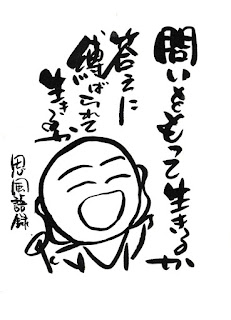 問いをもって生きるか
答えに
縛られて
生きるか
思風語録